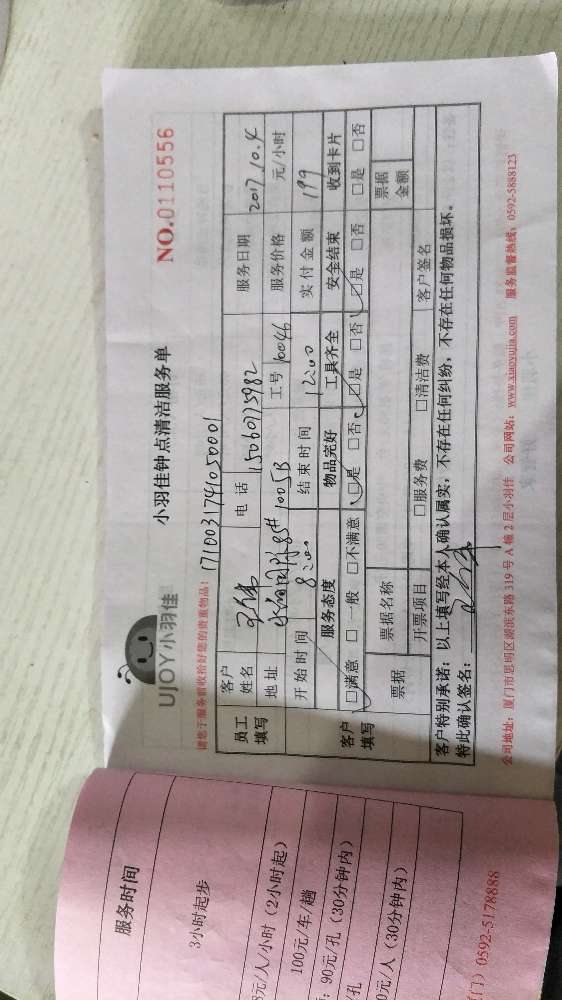 小羽佳钟点清洁服务单
NO.0110556
UJOY小羽佳
请您于服务前收拾好您的贵重物品!
1710031741050001
员工填写
客户姓名
电话 15060775982
服务日期 2017.10.4
地址 85# 1005B
工号 10046
服务价格 元/小时
开始时间 8:00
结束时间 12:00
实付金额 199
客户填写
服务态度 物品完好 工具齐全 安全结束 收到卡片
□满意 □一般 □不满意 □是 □否 □是 □否 □是 □否 □是 □否
票据 票据名称 票据金额
开票项目 □服务费 □清洁费 客户签名
客户特别承诺:以上填写经本人确认属实,不存在任何纠纷,不存在任何物品损坏。
特此确认签名:
公司地址:厦门市思明区湖滨东路319号A幢2层小羽佳 公司网站:www.xiaoyujia.com 服务监督热线:0592-5888123
服务时间
3小时起步
元/人/小时(2小时起)
100元/车/趟
:90元/孔(30分钟内)
孔
0元/人(30分钟内)
门)0592-5178888